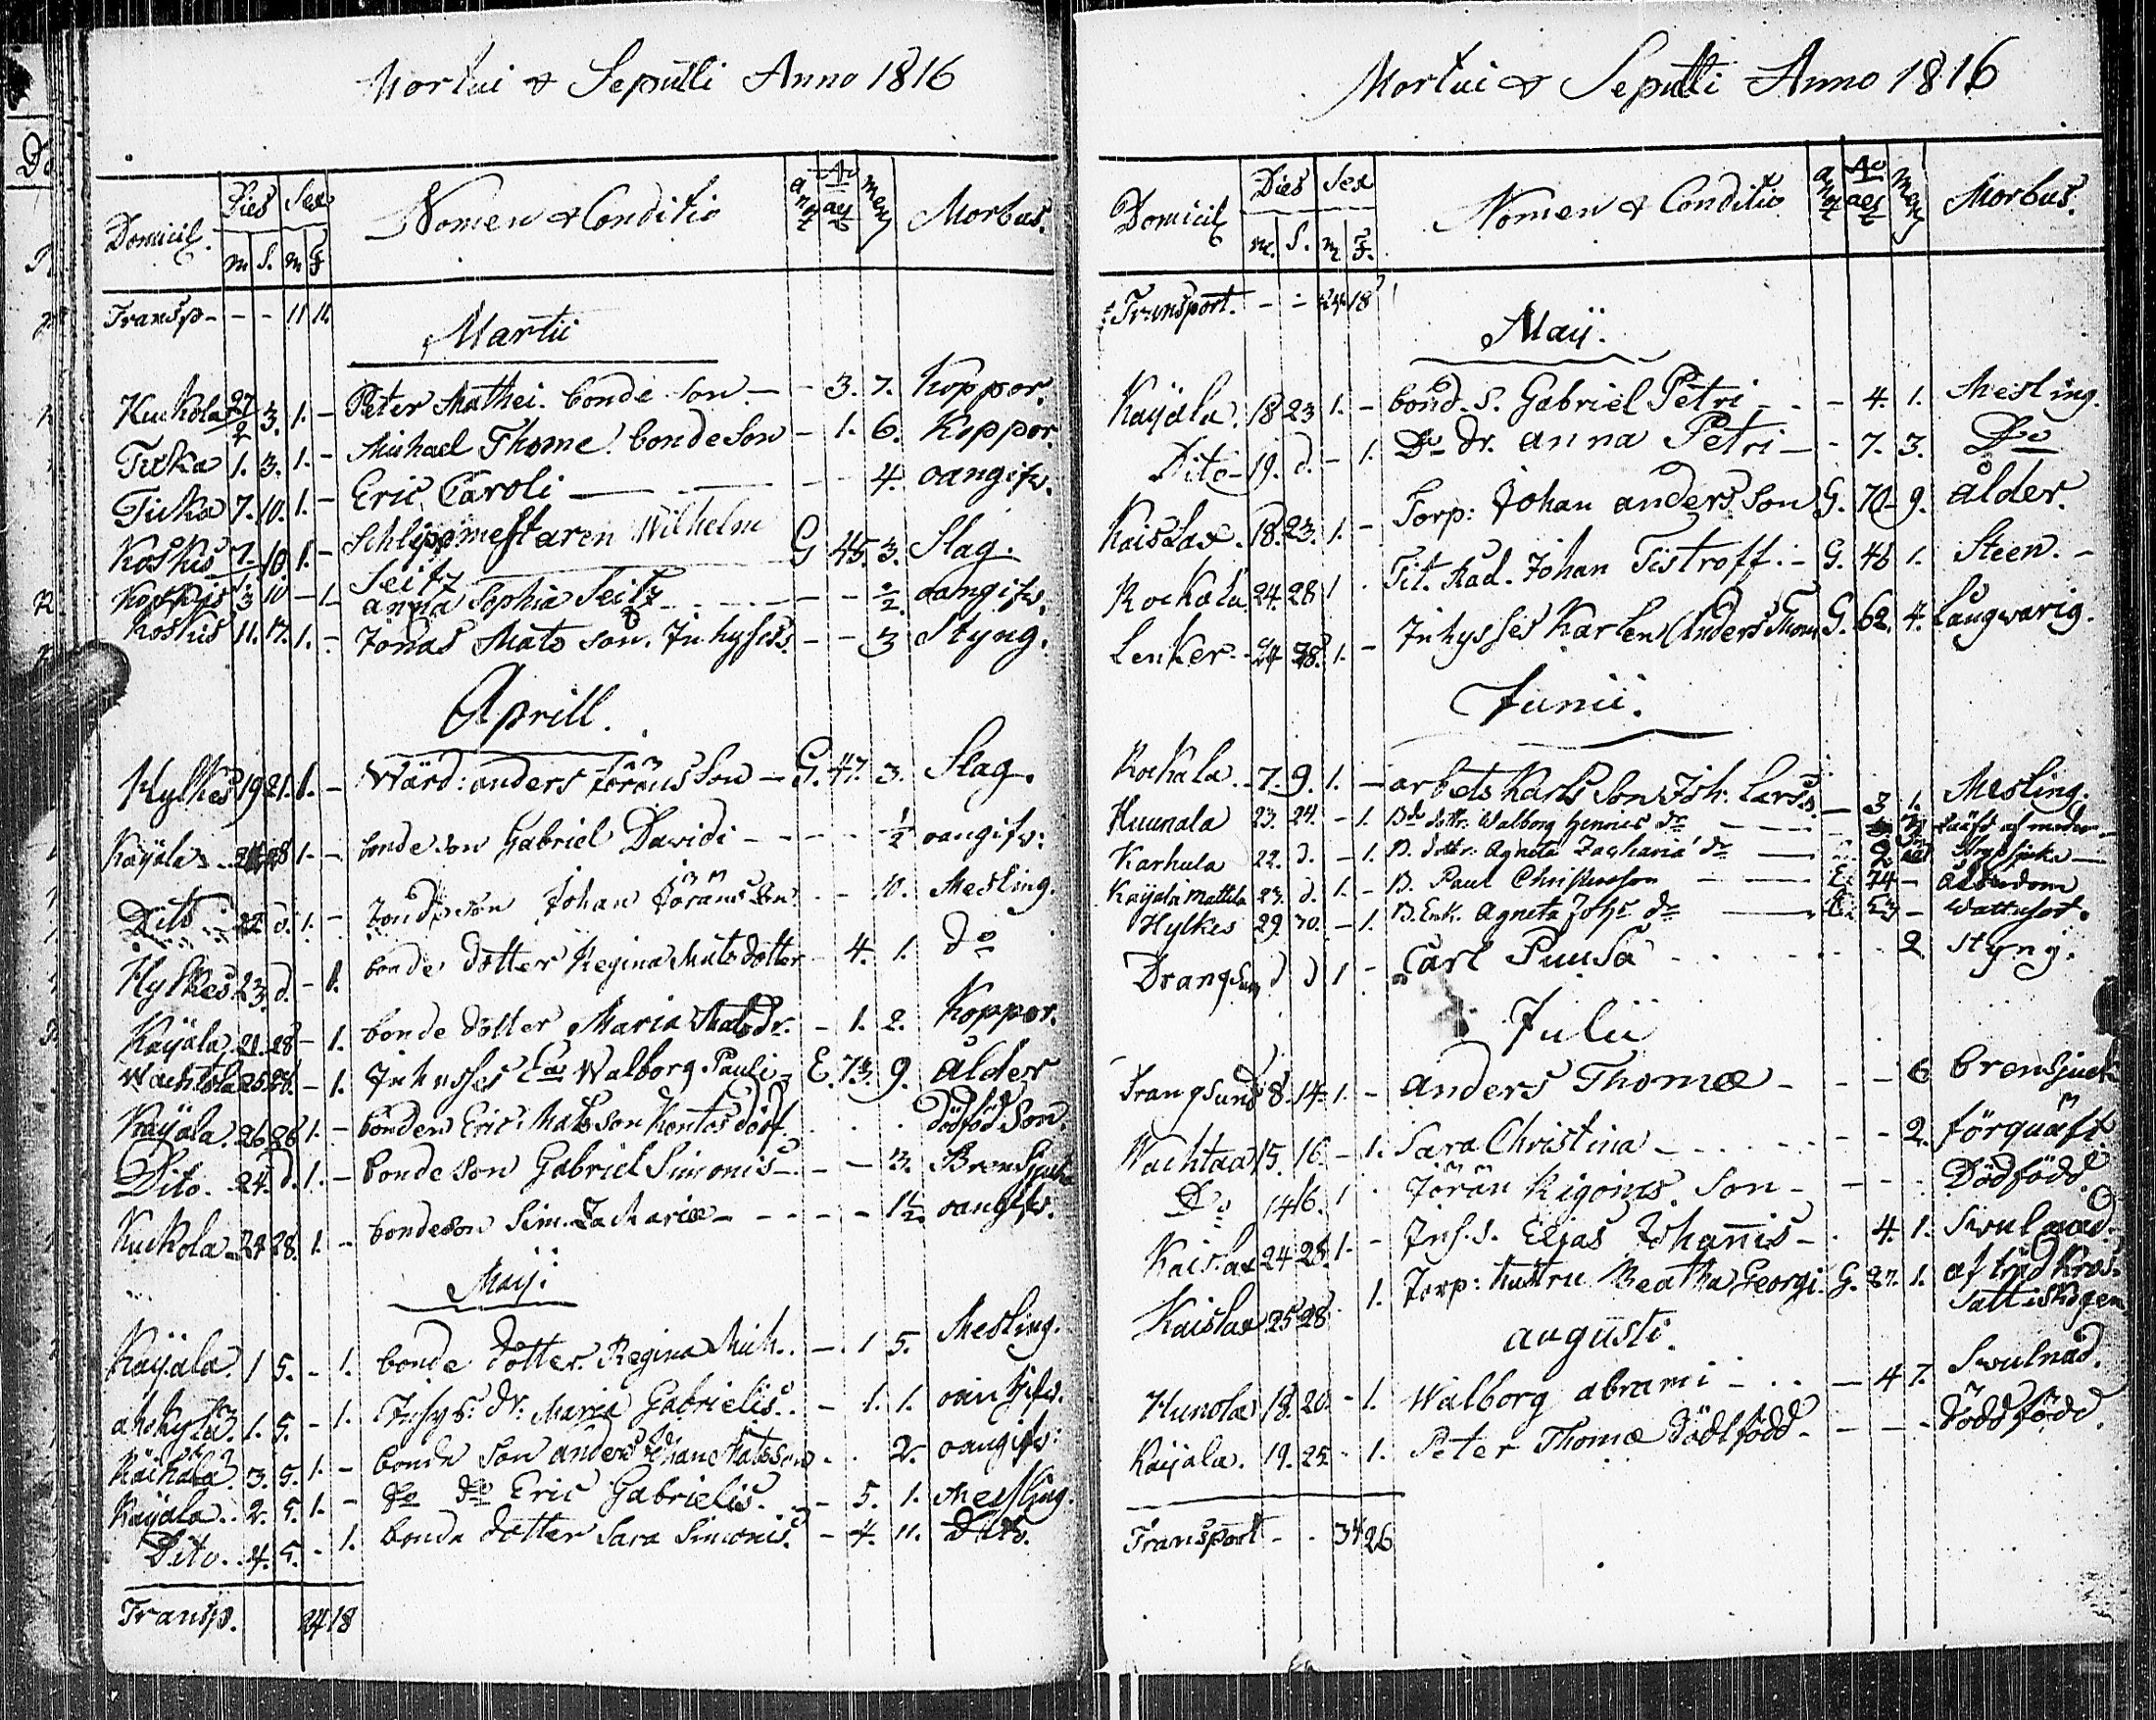 Mortui & Sepulti Anno 1816
Domicil. Dies Sex Nomen & Conditio Ao aet Mens Morbus.
m S. m F
Transp - - - 11 12
Martii
Kuckola 27/2 3. 1. - Peter Mathei. bonde son - - 3. 7. Koppor.
Tixka 1. 3. 1. - Michael Thome. bonde Son - 1. 6. Koppor.
Tixka 7. 10. 1. - Eric Caroli - - - 4. oangifv.
Koskis 7. 10. 1. - Schlippmestaren Wilhelm Seitz G 45. 3. Slag.
Koskis 3 10 - 1. anna Sophia Seitz - - - ½ oangifv.
Koskis 11. 17. 1. - Jonas Mats son. Inhyses. - - 3 Styng.
Aprill.
Hylkes 19 21. 1. - Wärd: anders Jörans Son - G. 47. 3. Slag.
Kayala 28 1. - bonde son Gabriel Davidi - - - ½ oangifv:
Dito 22 d. 1. - bonde son Johan Jörans Son - - 10. Mesling.
Hylkes 23 d. - 1. bonde dotter Regina Mats dotter - 4. 1. do
Kayala 21. 28 - 1. bonde dotter Maria Matsdr. - 1. 2. Koppor.
Wachtola 25 28. - 1. Inhyses Ea Walborg Pauli - E. 73. 9. ålder
Kayala. 26 28 1. - bonden Eric Matsson Kentos dödf. . . . dödföd Son.
Dito. 24. d. 1. - bonde son Gabriel Simonis - - - 3. Bronsjuka
Kuckola 24 28. 1. - bondeson Sim. Zachariæ - - - - 1½ oangifv.
Maij.
Kayala. 1 5. - 1. bonde dotter Regina Mich. . - . 1 5. Mesling.
1. 5. - 1. Inhys: dr. Maria Gabrielis. . - 1. 1. oangifv.
3. 5. 1. - bonde son anders - . 2. oangifv:
Kayala. 2. 5. 1. - do do Eric Gabrielis. - 5. 1. Messling.
Dito. 4. 5. - 1. bonde dotter Sara Simonis. - 4. 11. Dito.
Transp. 24 18
Mortui & Sepulti Anno 1816
Domicil Dies Sex Nomen & Conditio Ao aet Mens Morbus.
m. S. m F.
Transport. - - 24 18
Maij.
Kayala. 18 23 1. - bond. S. Gabriel Petri - - - 4. 1. Mesling.
Dito - 19. d. - 1. Do dr. anna Petri - - 7. 3. Do
Kaislax. 18. 23. 1. - Torp: Johan anders son G. 70. 9. ålder.
Rockala 24. 28 1 . Tit. Rad. Johan Tistroff. - G. 46 1. Steen. -
Lenker - 24 28. 1. - Inhysses Karlen Anders Thom G. 62. 4. Långvarig.
Junii.
Rockala. 7. 9. 1. - arbets Karls Son Joh. Larss. - 3 1. Mesling.
Huunala 23. 24. - 1. Bde dottr. Walborg Henrics dr
Karhula 22. d. - 1. B. dottr. Agneta Zacharia dr
Kayala Mattila 23. d. 1. - B. Paul Christersson E: 74 - Ålderdom
Hylkes 29. 30. - 1. B. Enk. Agneta Johs dr E: 53 - Wattusot.
Drangsund d d 1 - Carl Puusa - - - 2 Styng.
Julii
Trangsund 8. 14. 1. - anders Thomæ - - - 6 bronsjuck
Wachtaa 15. 16. - 1. Sara Christina - - - - 2. förquäft
Do 14 16. 1 . Jöran Rigonis. Son - - - - Dödfödd
Kaislax 24 28. 1. - Inh. S. Elias Johannis - . 4. 1. Svulnad.
Kaislax 25 28 . 1. Torp: hustru Beatha Georgi. G. 27. 1. af träd Kros-
satt i skogen
augusti.
Hunola 18. 20. - 1. Walborg abrami - . . - 4 7. Svulnad.
Kayala. 19. 25. - 1. Peter Thomæ dödfödd - - - - dödfödd.
Transport - - 34 26